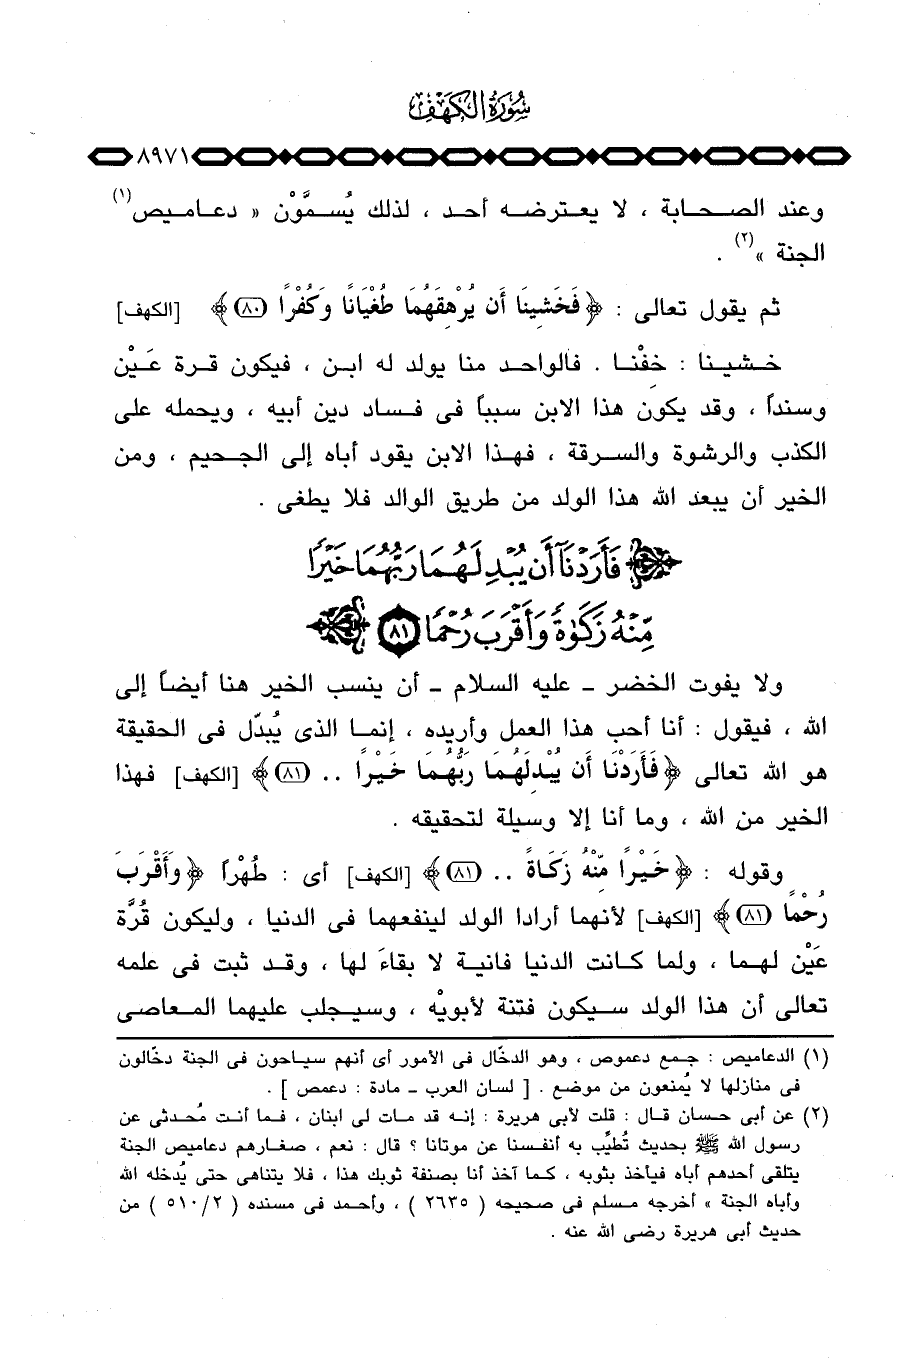 سُورَةُ الكَهْفِ
٨٩٧١
وعند الصحابة ، لا يعترضه أحد ، لذلك يُسمَّوْن « دعاميص(١)
الجنة »(٢) .
ثم يقول تعالى : ﴿ فَخَشِينَا أَن يُرْهِقَهُمَا طُغْيَانًا وَكُفْرًا (٨٠) ﴾ [الكهف]
خشينا : خفْنا . فالواحد منا يولد له ابن ، فيكون قرة عَيْن
وسنداً ، وقد يكون هذا الابن سبباً فى فساد دين أبيه ، ويحمله على
الكذب والرشوة والسرقة ، فهذا الابن يقود أباه إلى الجحيم ، ومن
الخير أن يبعد الله هذا الولد من طريق الوالد فلا يطغى .
﴿ فَأَرَدْنَآ أَن يُبْدِلَهُمَا رَبُّهُمَا خَيْرًا
مِّنْهُ زَكَوٰةً وَأَقْرَبَ رُحْمًا (٨١) ﴾
ولا يفوت الخضر - عليه السلام - أن ينسب الخير هنا أيضاً إلى
الله ، فيقول : أنا أحب هذا العمل وأريده ، إنما الذى يُبدّل فى الحقيقة
هو الله تعالى ﴿ فَأَرَدْنَا أَن يُبْدِلَهُمَا رَبُّهُمَا خَيْرًا .. (٨١) ﴾ [الكهف] فهذا
الخير من الله ، وما أنا إلا وسيلة لتحقيقه .
وقوله : ﴿ خَيْرًا مِّنْهُ زَكَاةً .. (٨١) ﴾ [الكهف] أى : طُهْراً ﴿ وَأَقْرَبَ
رُحْمًا (٨١) ﴾ [الكهف] لأنهما أرادا الولد لينفعهما فى الدنيا ، وليكون قُرَّة
عَيْن لهما ، ولما كانت الدنيا فانية لا بقاءَ لها ، وقد ثبت فى علمه
تعالى أن هذا الولد سيكون فتنة لأبويْه ، وسيجلب عليهما المعاصى
(١) الدعاميص : جمع دعموص ، وهو الدخّال فى الأمور أى أنهم سياحون فى الجنة دخّالون
فى منازلها لا يُمنعون من موضع . [ لسان العرب - مادة : دعمص ] .
(٢) عن أبى حسان قال : قلت لأبى هريرة : إنه قد مات لى ابنان ، فما أنت مُحدثى عن
رسول الله ﷺ بحديث تُطيِّب به أنفسنا عن موتانا ؟ قال : نعم ، صغارهم دعاميص الجنة
يتلقى أحدهم أباه فيأخذ بثوبه ، كما آخذ أنا بصنفة ثوبك هذا ، فلا يتناهى حتى يُدخله الله
وأباه الجنة » أخرجه مسلم فى صحيحه ( ٢٦٣٥ ) ، وأحمد فى مسنده ( ٥١٠/٢ ) من
حديث أبى هريرة رضى الله عنه .